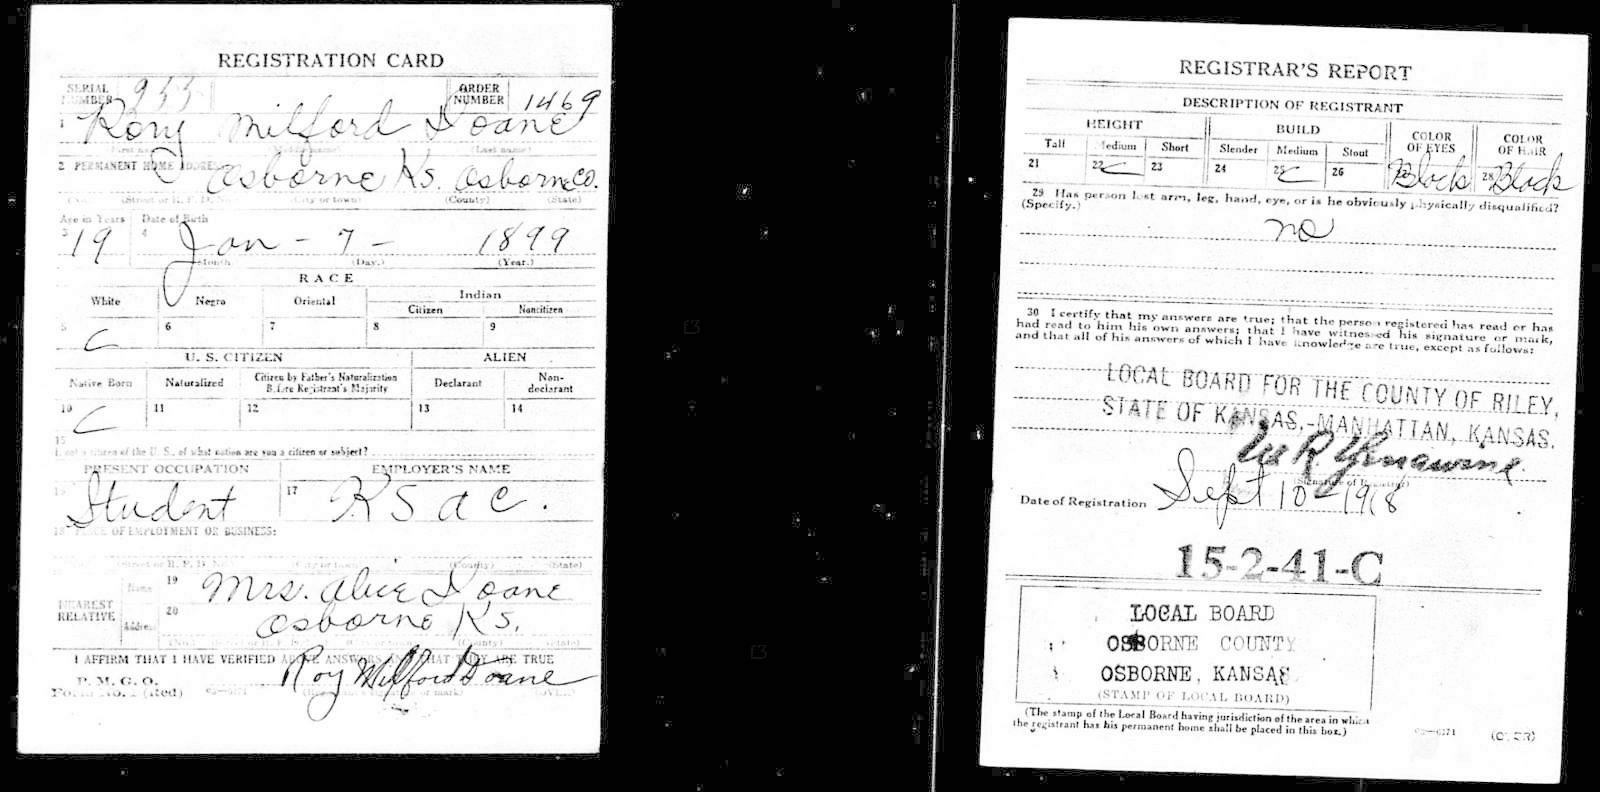 REGISTRATION CARD
SERIAL NUMBER 933
ORDER NUMBER 1469
1 Rory Milford Doane
(First name) (Middle name) (Last name)
2 PERMANENT HOME ADDRESS
Osborne Ks. Osborne Co.
(No.) (Street or R. F. D. No.) (City or town) (County) (State)
Age in Years Date of Birth
3 19 4 Jan - 7 - 1899
Month (Day.) (Year.)
RACE
White Negro Oriental Indian
Citizen Noncitizen
5 6 7 8 9
U. S. CITIZEN ALIEN
Native Born Naturalized Citizen by Father's Naturalization Before Registrant's Majority Declarant Non-declarant
10 11 12 13 14
15
If not a citizen of the U. S., of what nation are you a citizen or subject?
PRESENT OCCUPATION EMPLOYER'S NAME
16 Student 17 K S a C .
18 PLACE OF EMPLOYMENT OR BUSINESS:
(No.) (Street or R. F. D. No.) (City or town) (County) (State)
NEAREST RELATIVE
Name 19 Mrs. Alice Doane
Address 20 Osborne Ks.
(No.) (Street or R. F. D. No.) (City or town) (County) (State)
I AFFIRM THAT I HAVE VERIFIED ABOVE ANSWERS AND THAT THEY ARE TRUE
P. M. G. O.
Form No. 1 (Red) 03—6171 Roy Milford Doane
(Registrant's signature or mark) (OVER)
REGISTRAR'S REPORT
DESCRIPTION OF REGISTRANT
HEIGHT BUILD COLOR OF EYES COLOR OF HAIR
Tall Medium Short Slender Medium Stout
21 22 23 24 25 26 27 Black 28 Black
29 Has person lost arm, leg, hand, eye, or is he obviously physically disqualified?
(Specify.)
no
30 I certify that my answers are true; that the person registered has read or has
had read to him his own answers; that I have witnessed his signature or mark,
and that all of his answers of which I have knowledge are true, except as follows:
LOCAL BOARD FOR THE COUNTY OF RILEY,
STATE OF KANSAS,-MANHATTAN, KANSAS.
(Signature of Registrar)
Date of Registration Sept 10 - 1918
15-2-41-C
LOCAL BOARD
OSBORNE COUNTY
OSBORNE, KANSAS
(STAMP OF LOCAL BOARD)
(The stamp of the Local Board having jurisdiction of the area in which
the registrant has his permanent home shall be placed in this box.)
03—6171 (OVER)